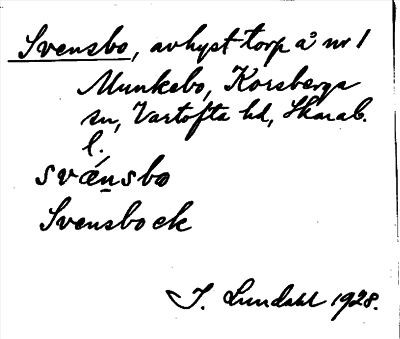 Svensbo, avhyst torp å nr 1
Munkebo, Korsberga
sn, Vartofta hd, Skarab.
l.
svænsbo
Svensboek
I. Lundahl 1928.